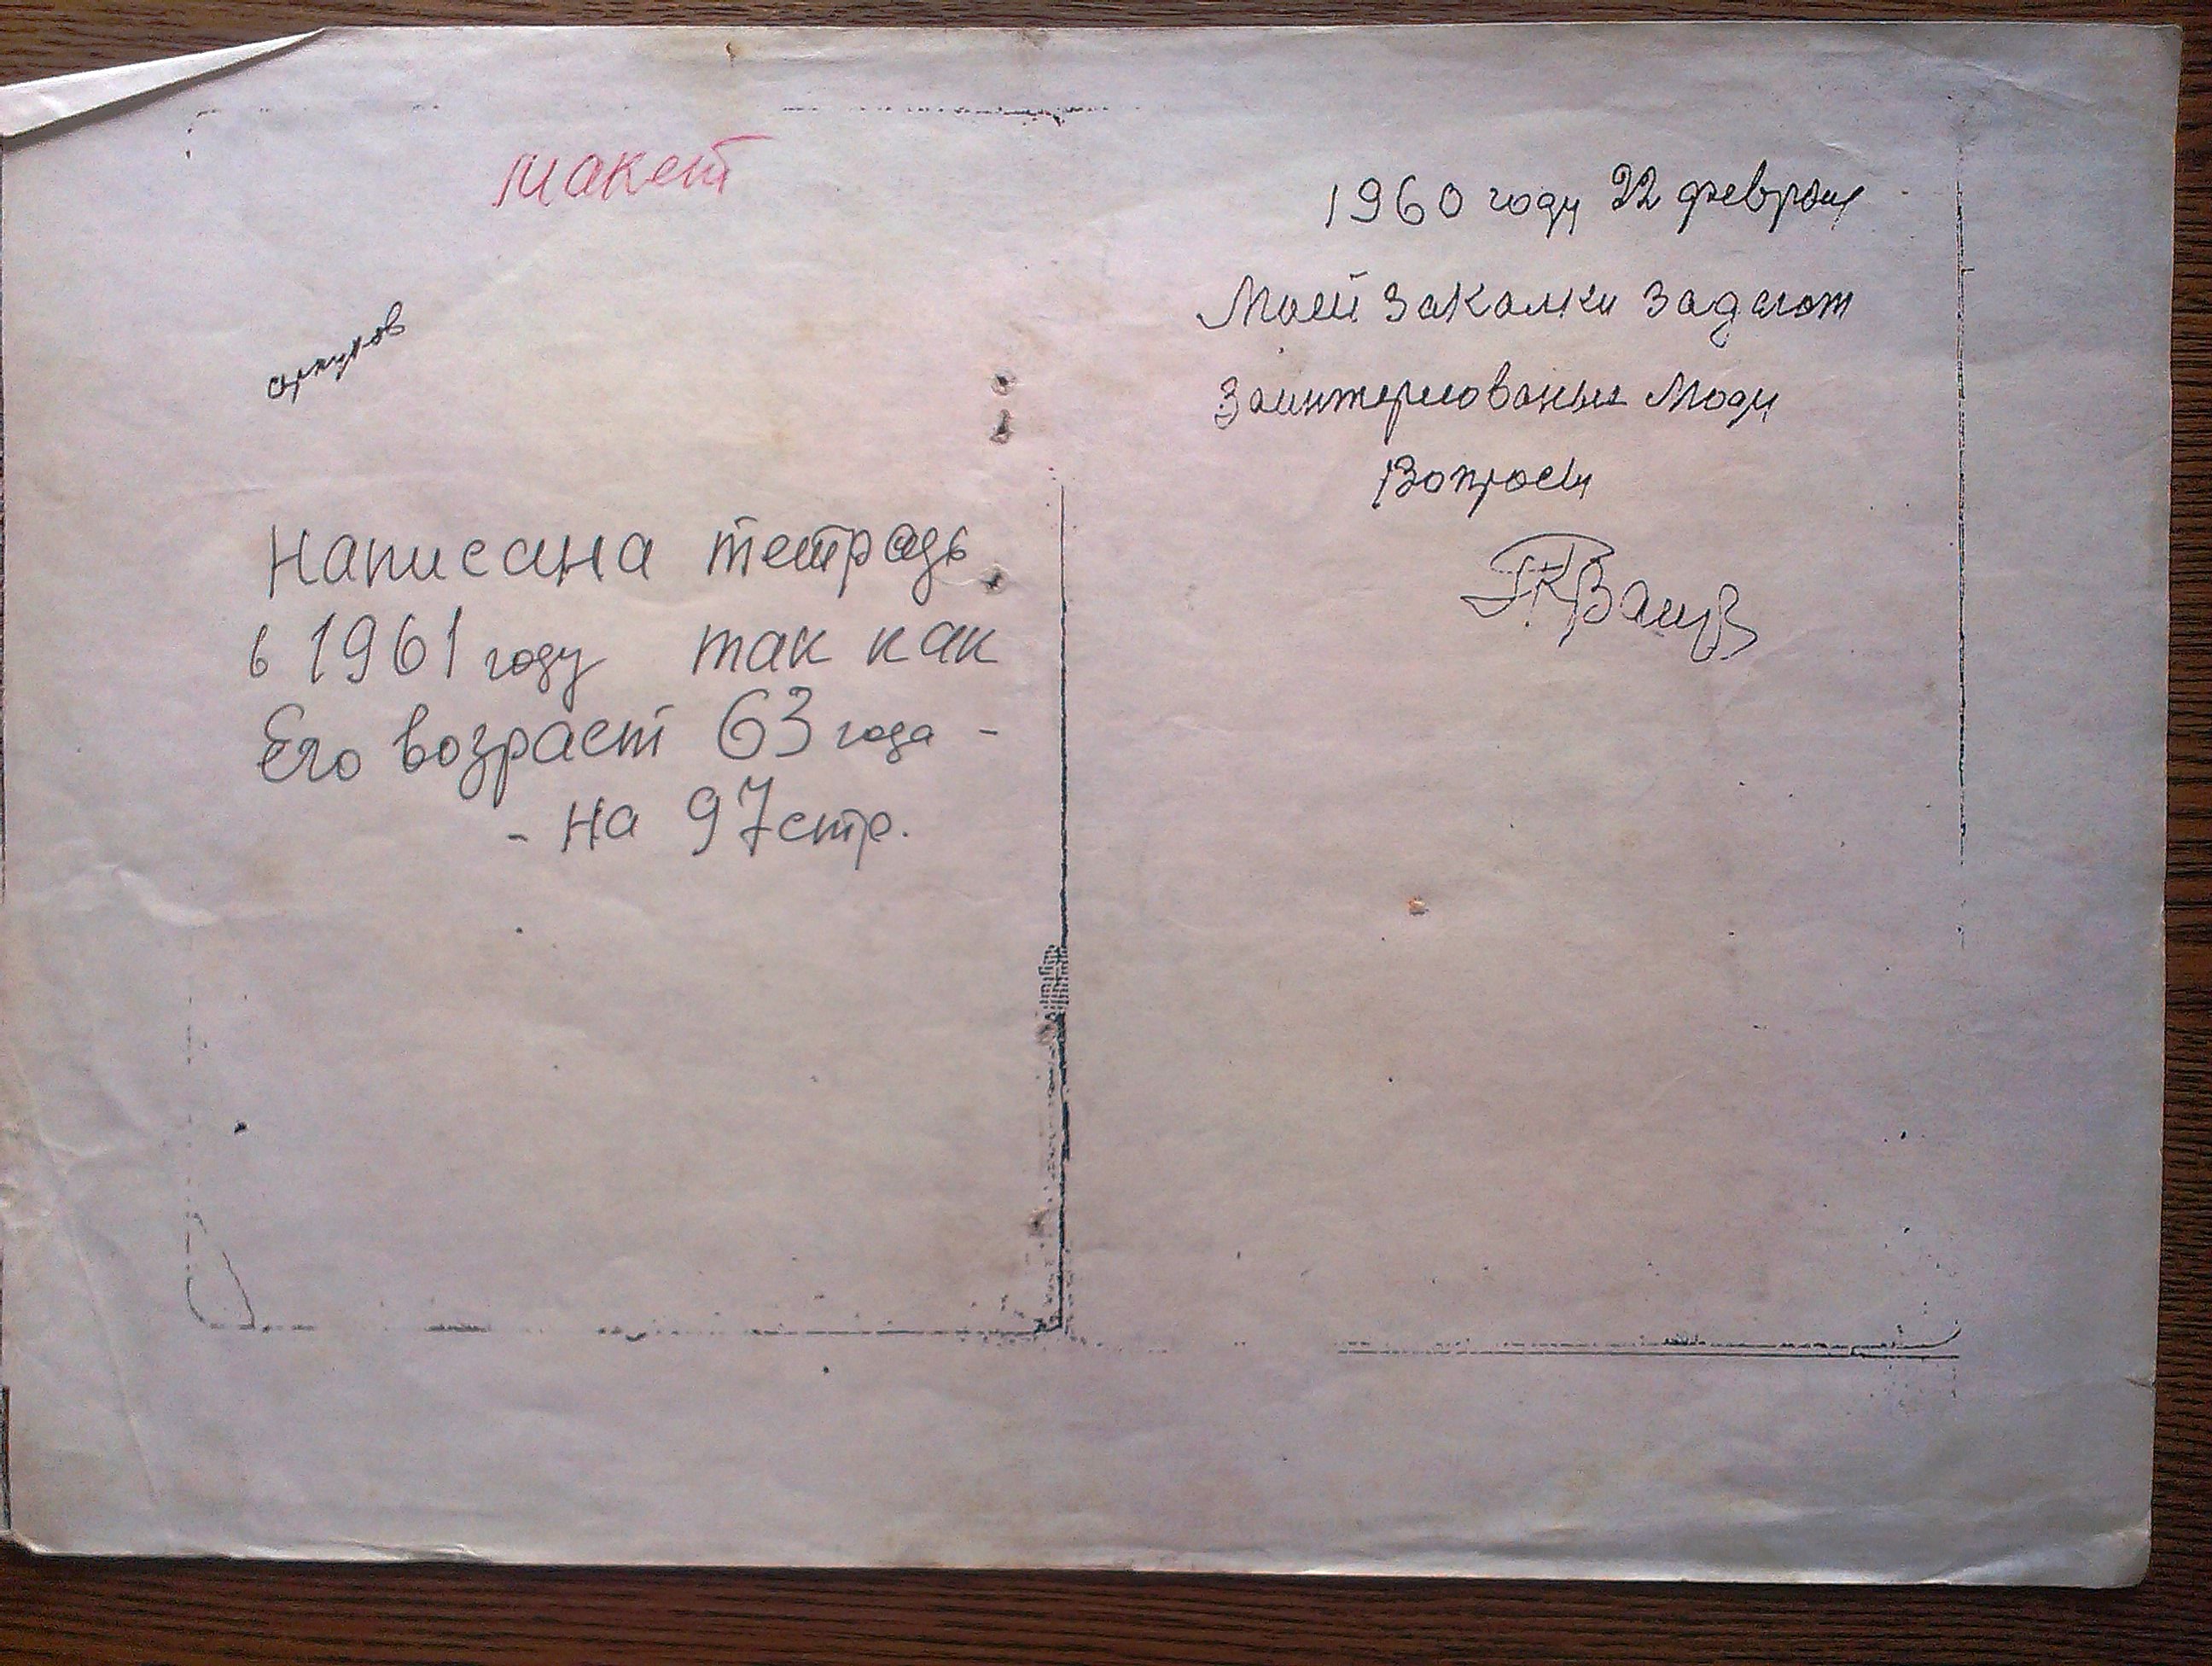 макет
Написана тетрадь
в 1961 году так как
Его возраст 63 года -
- на 97 стр.
1960 году 22 февраля
Моей закалки задают
Заинтересованые Люди
Вопросы